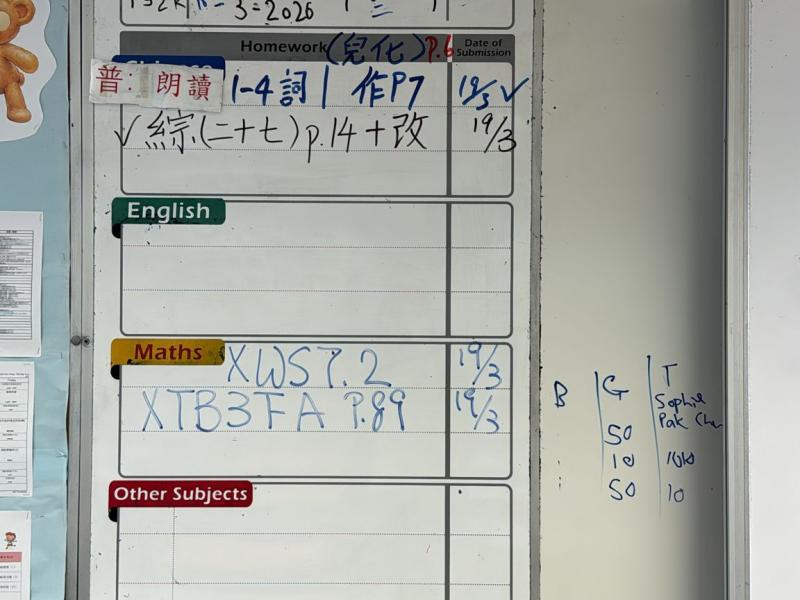 3=2026
Homework (兒化) P.6 Date of Submission
普: 朗讀 1-4 詞1 作P7 19/3 ✓
✓ 綜(二十七) p.14+改 19/3
English
Maths XWS P.2 19/3
XTB3FA P.89 19/3
Other Subjects
B G T
Sophie
Pak
50
10 100
50 10